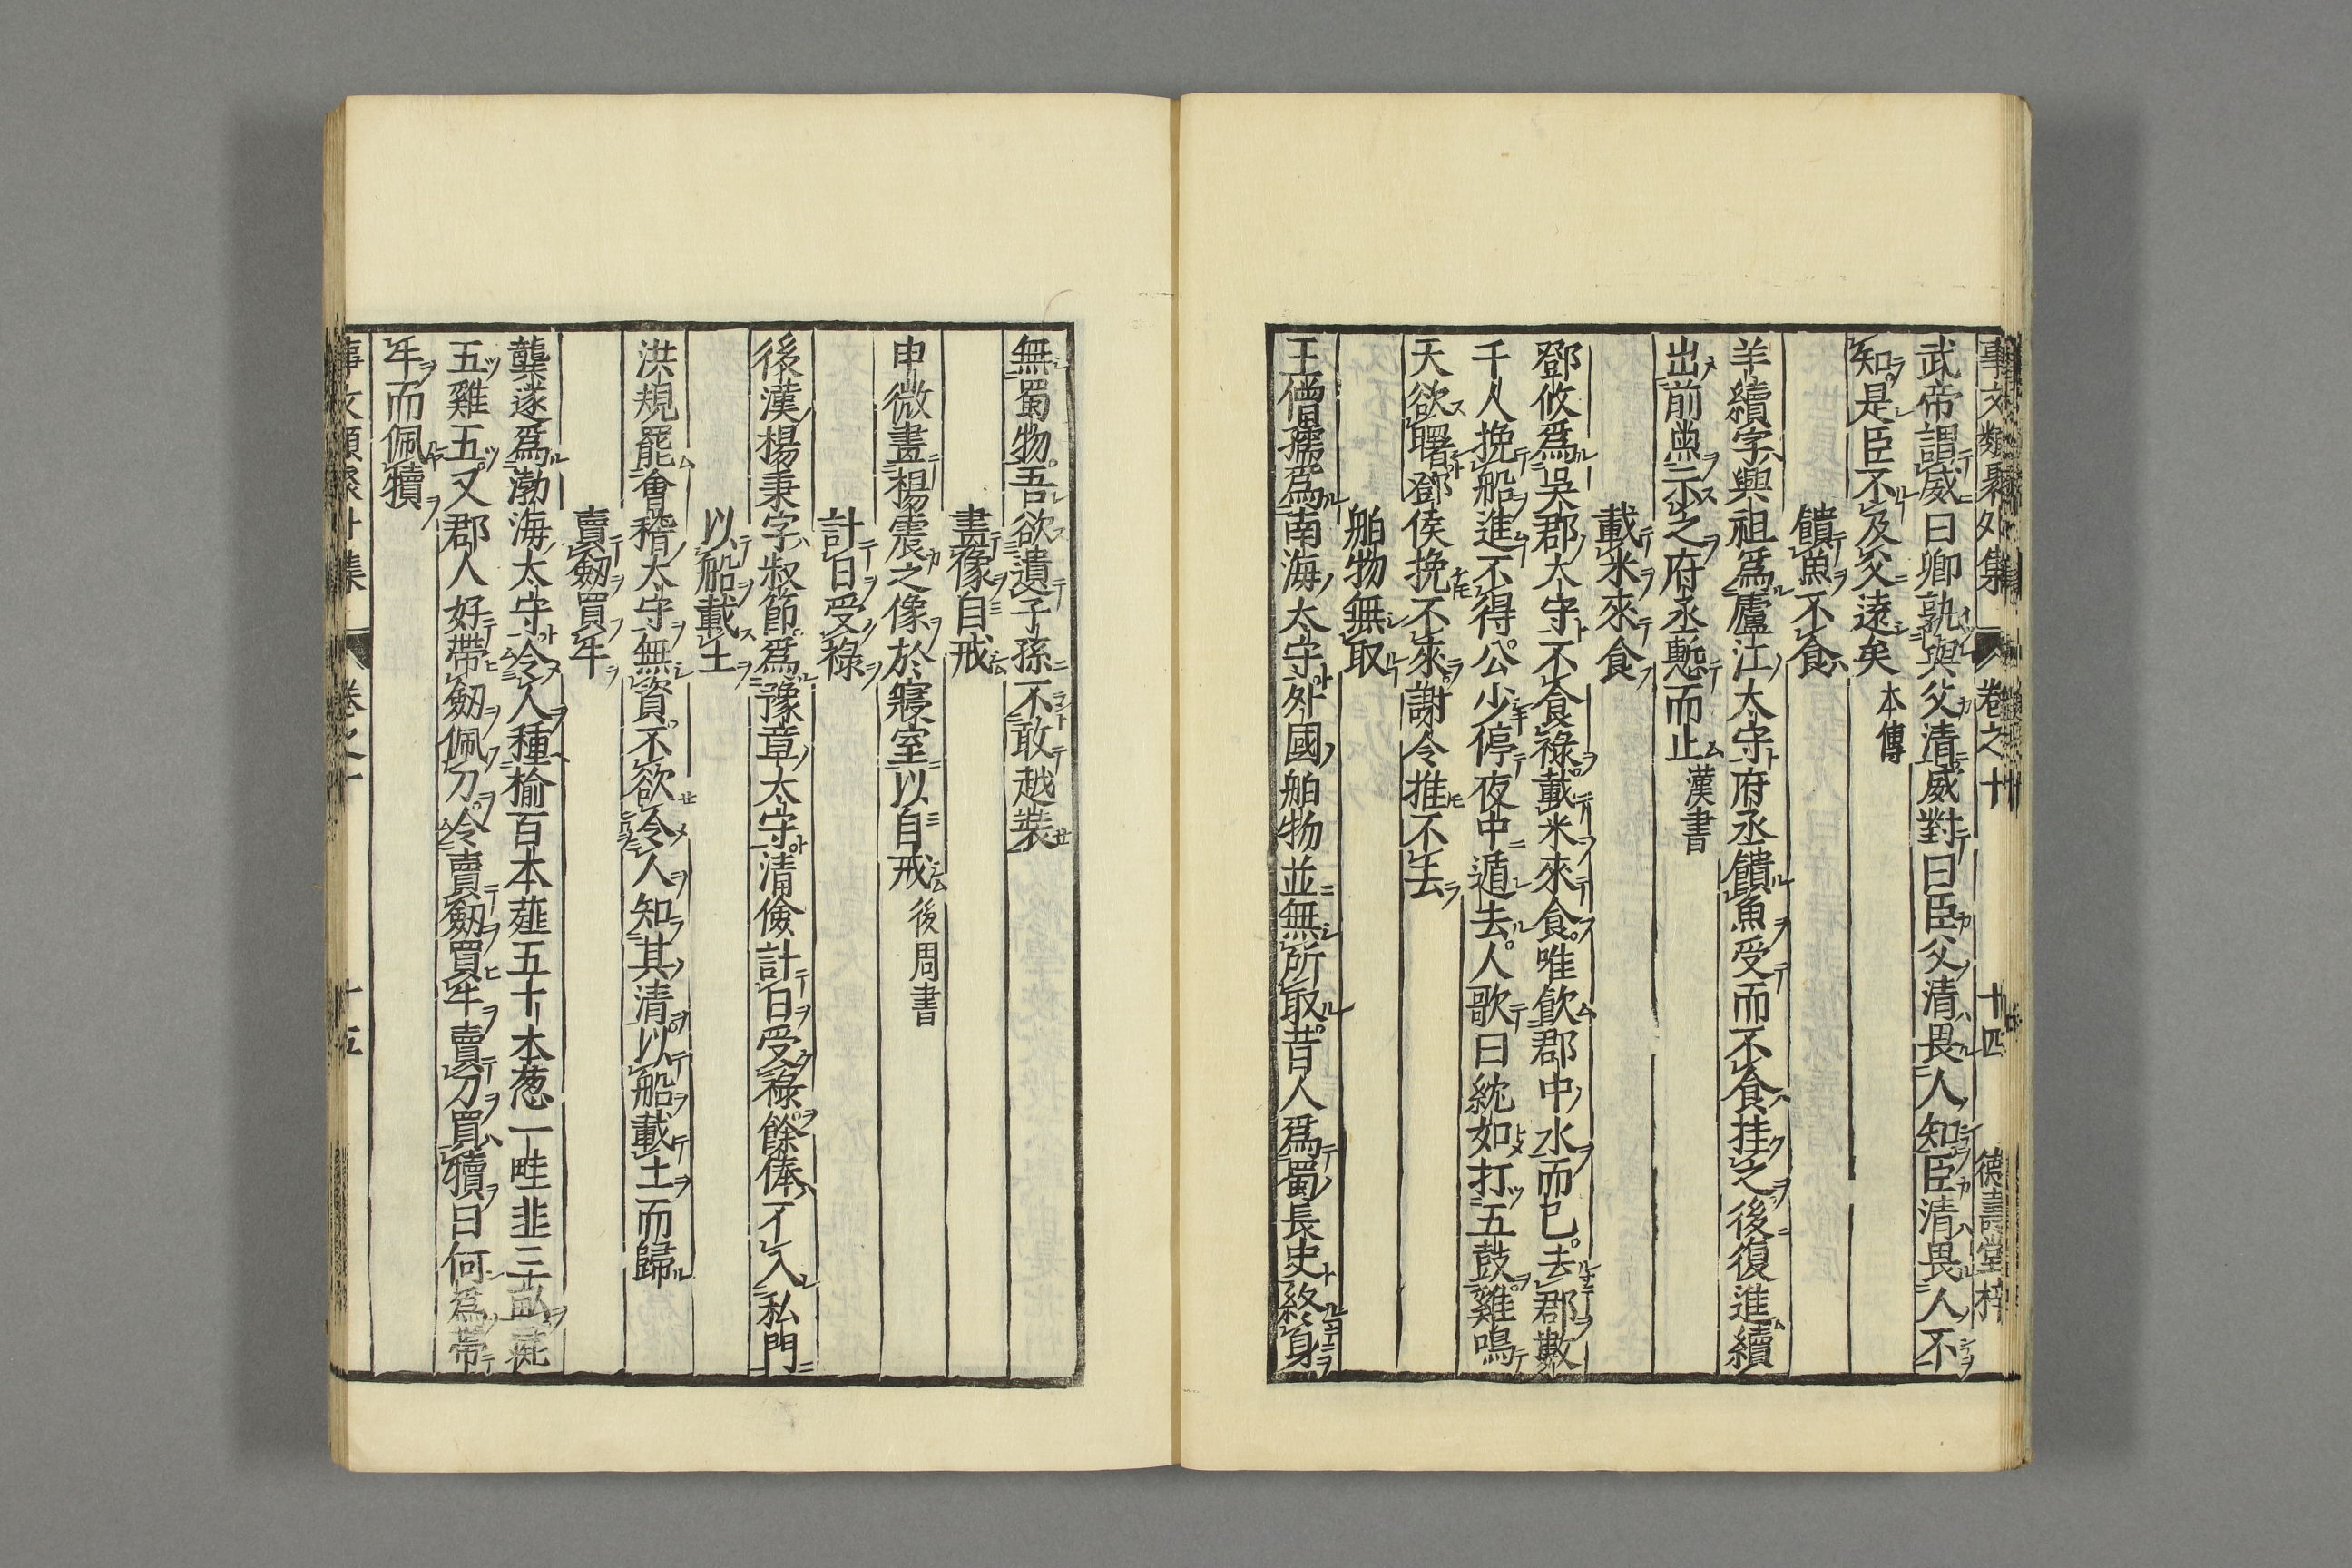 事文類聚外集 卷之十 十四 德壽堂梓
武帝謂威曰卿孰與父清威對曰臣父清畏人知臣清畏人不
知是臣不及父遠矣 本傳
饋魚不食
羊續字興祖爲廬江太守府丞饋魚受而不食挂之後復進續
出前魚示之府丞慙而止 漢書
載米來食
鄧攸爲吳郡太守不食祿載米來食唯飲郡中水而已去郡數
千人挽船進不得公少停夜中遁去人歌曰紞如打五鼓雞鳴
天欲曙鄧侯挽不來謝令推不去
舶物無取
王僧孺爲南海太守外國舶物並無所取昔人爲蜀長史終身
無蜀物吾欲遺子孫不敢越裝
畫像自戒
申微畫楊震之像於寢室以自戒 後周書
計日受祿
後漢楊秉字叔節爲豫章太守清儉計日受祿餘俸不入私門
以船載土
洪規罷會稽太守無資不欲令人知其清以船載土而歸
賣劔買牛
龔遂爲渤海太守令人種榆百本薤五十本葱一畦韭三畝
五雞五又郡人好帶劔佩刀令賣劔買牛賣刀買犢曰何爲帶
牛而佩犢
事文類聚外集 卷之十 十五